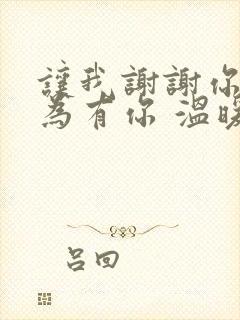 讓我謝謝你
為有你 溫暖
呂回